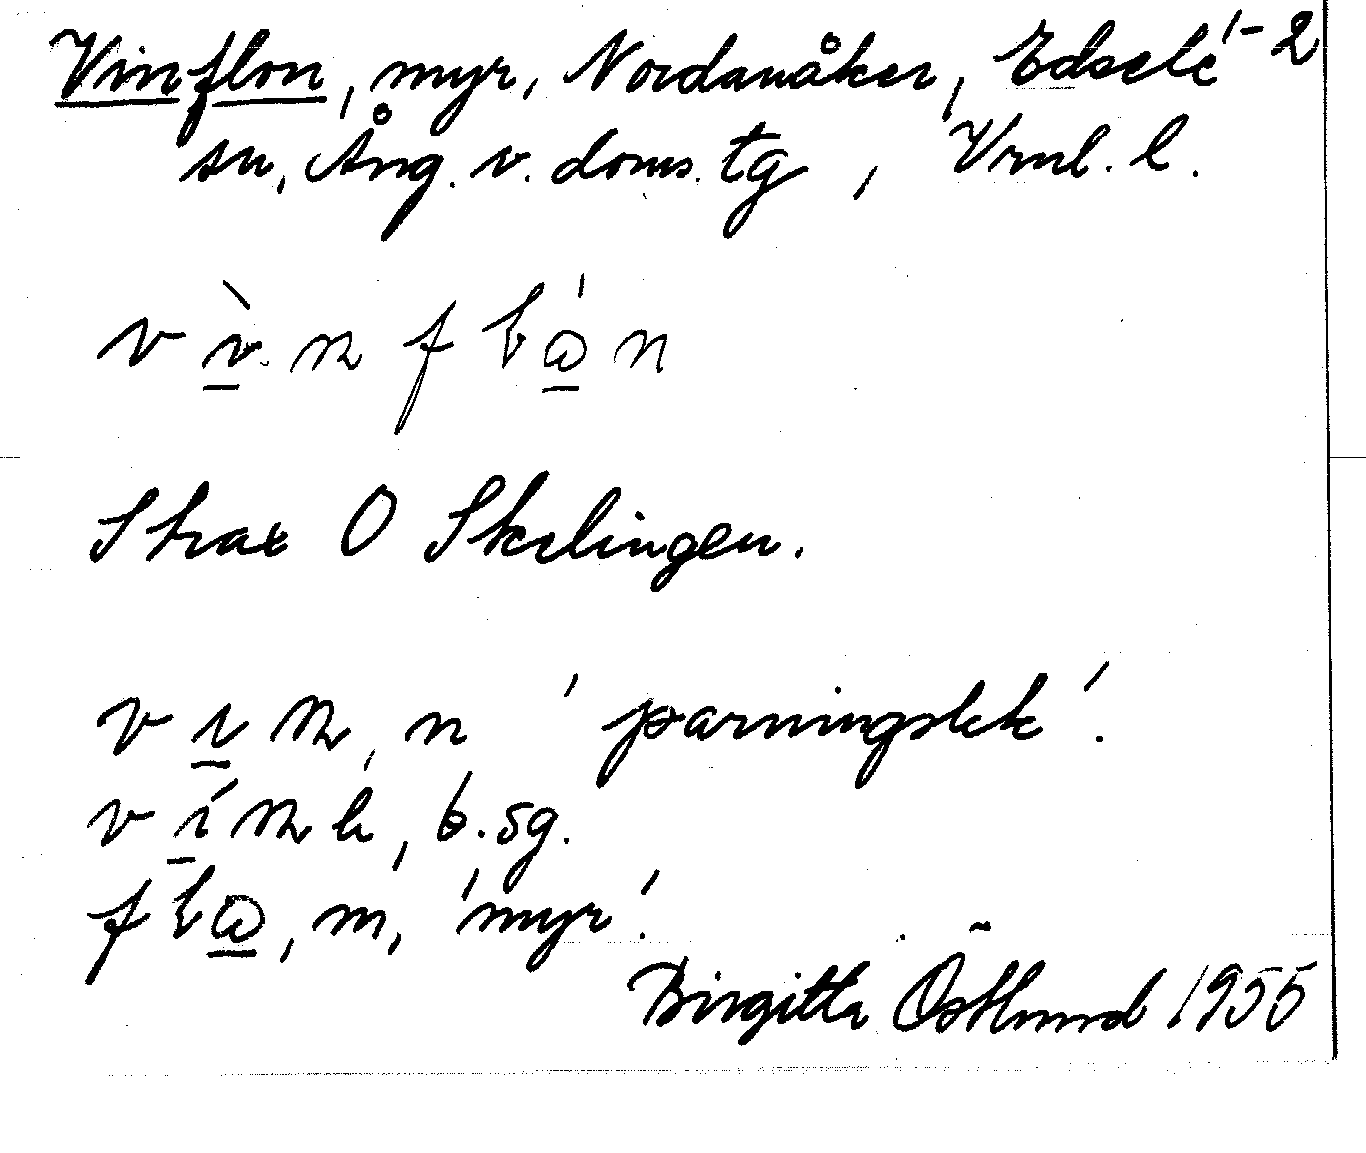 Vinflon, myr, Nordanåker, Edsele 1-2
sn, Ång. v. doms. tg, Vrml. l.
Strax O Skelingen.
n 'parningslek'.
b. sg.
m, 'myr'.
Birgitta Östlund 1955